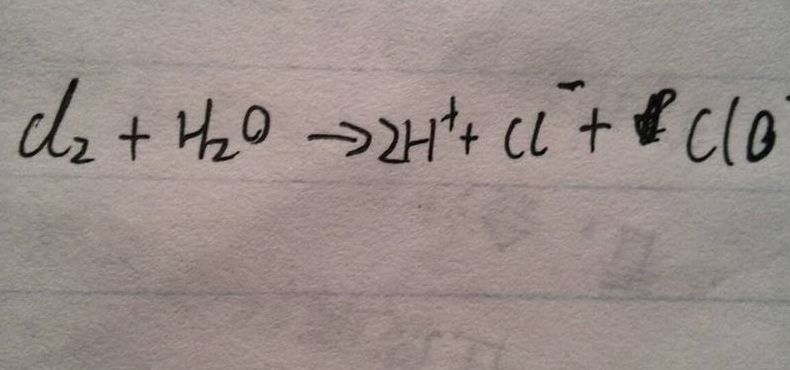 Cl₂ + H₂O → 2H⁺ + Cl⁻ + ClO⁻